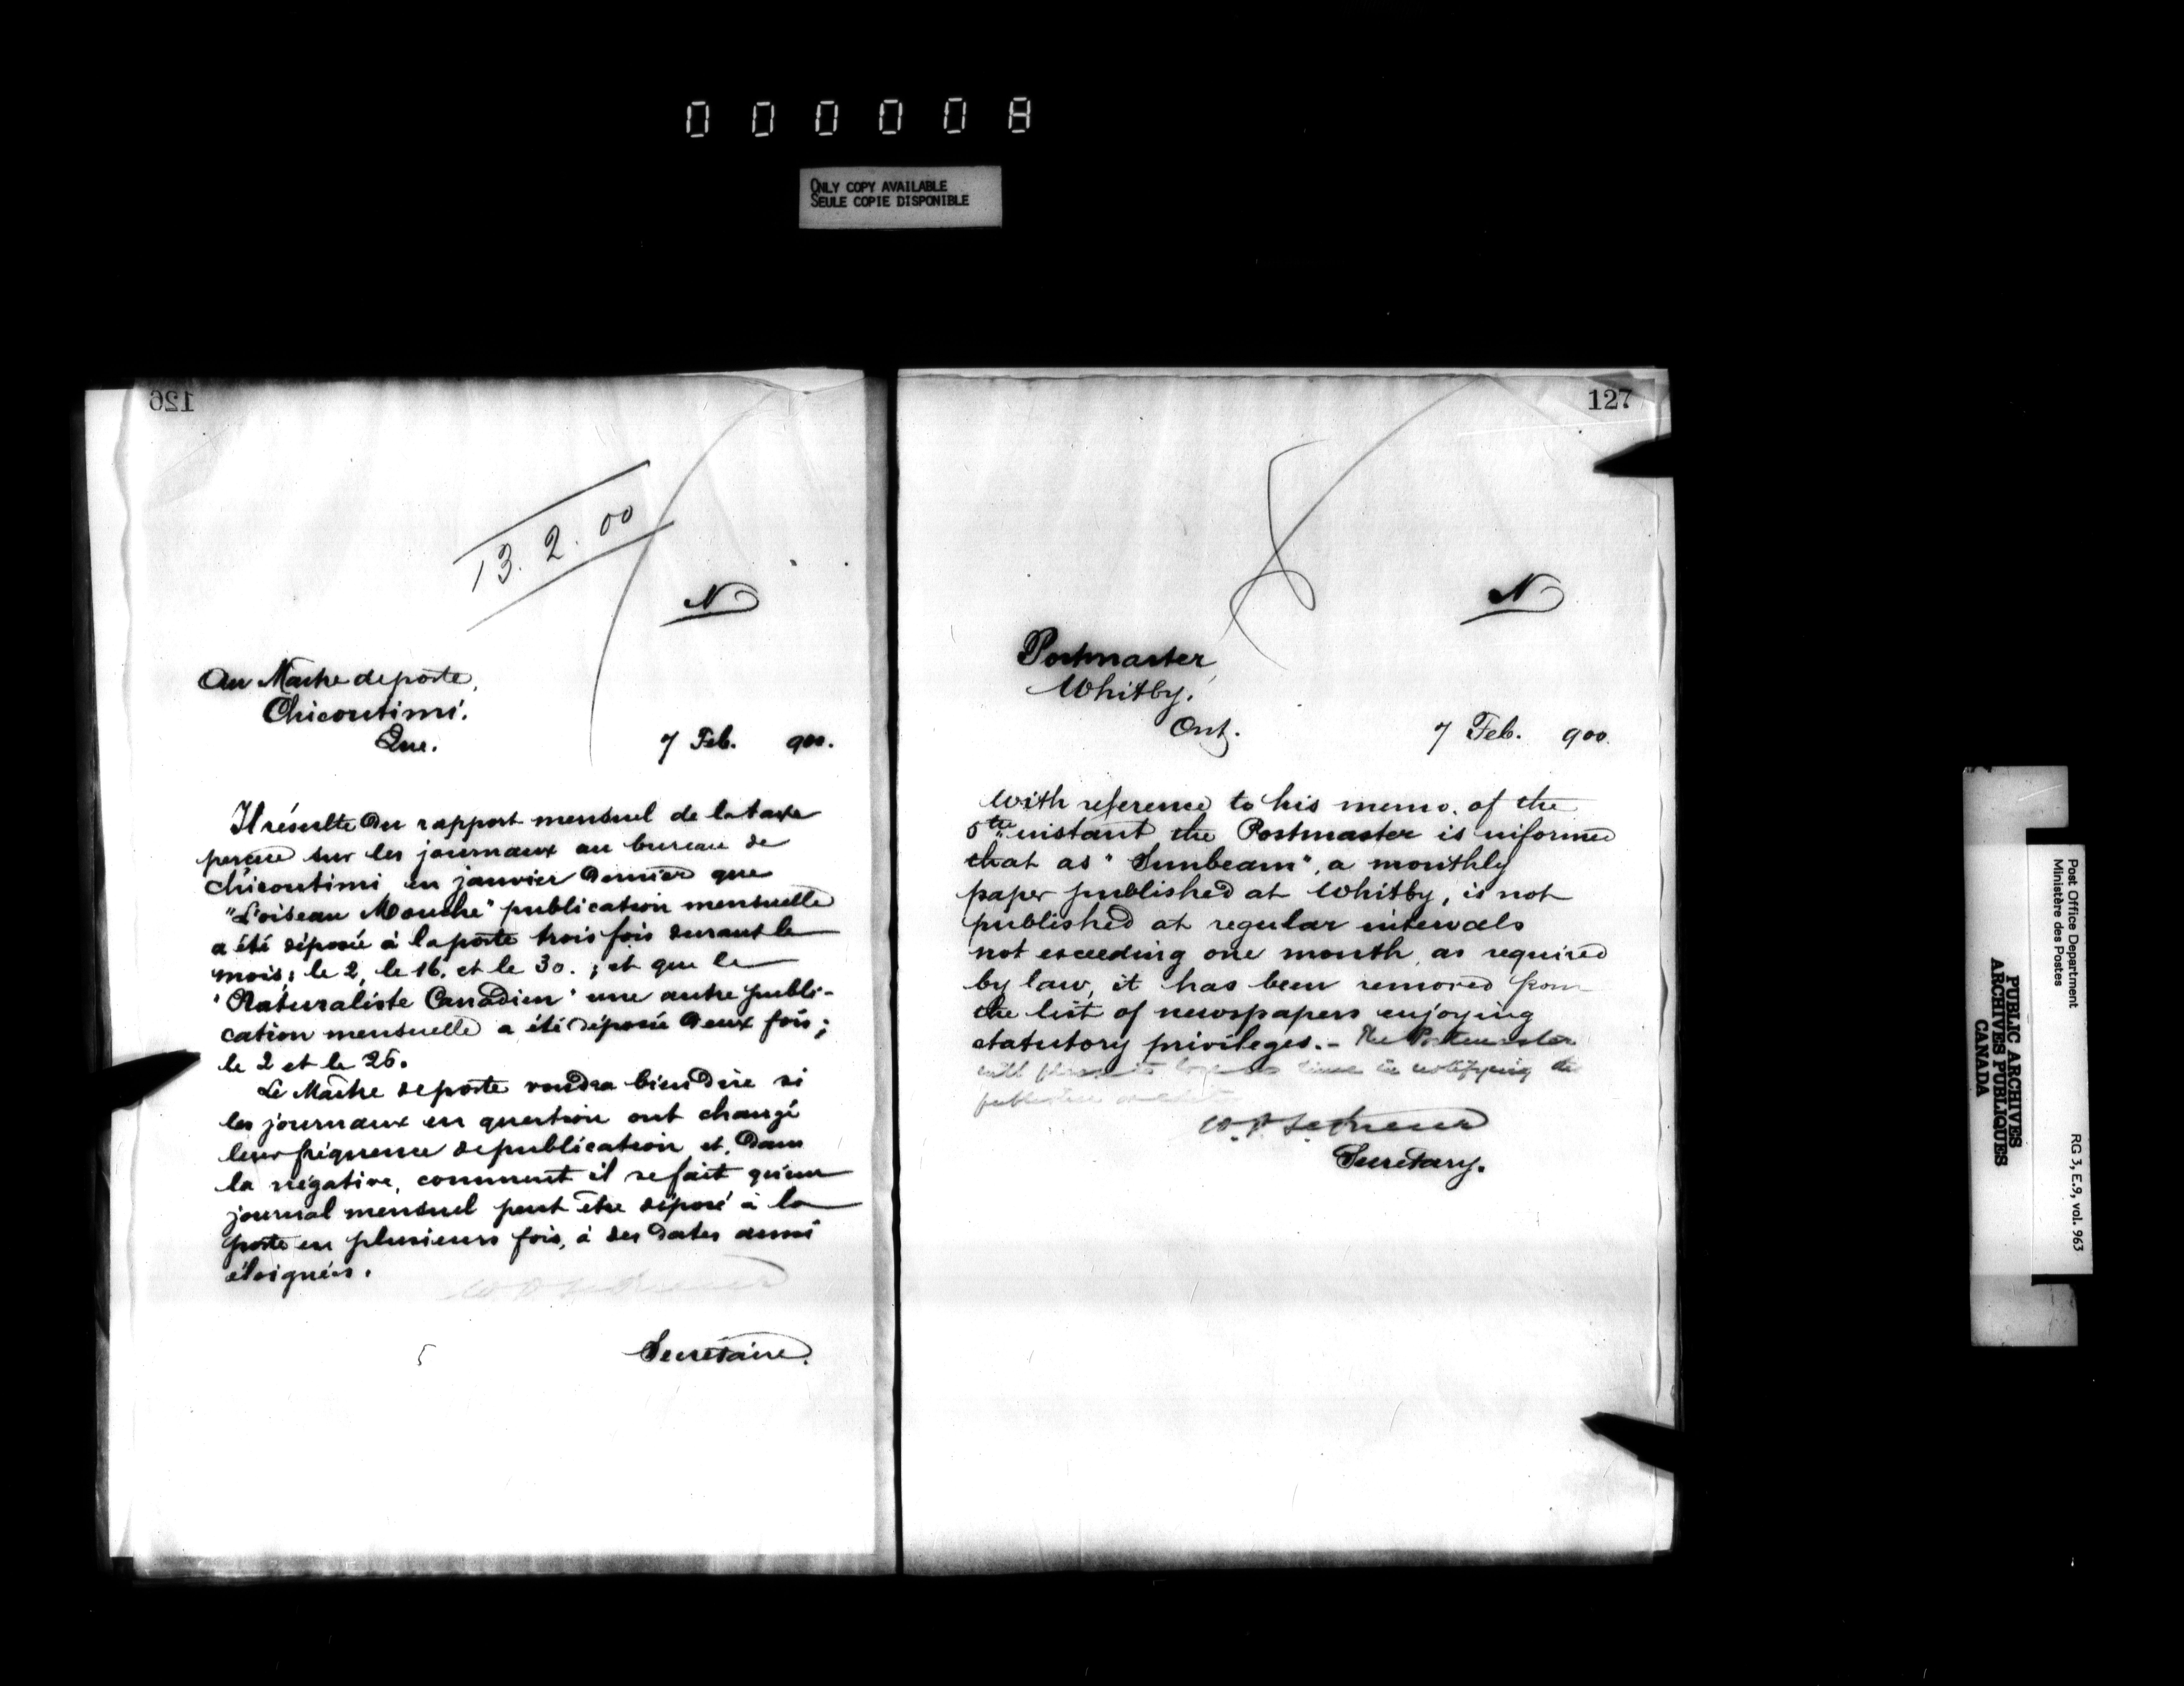 000008
ONLY COPY AVAILABLE
SEULE COPIE DISPONIBLE
126
13.2.00
N
Au Maître de poste,
Chicoutimi.
Que.
7 Feb. 900.
Il résulte du rapport mensuel de la taxe
perçue sur les journaux au bureau de
Chicoutimi en janvier dernier que
"L'oiseau Mouche" publication mensuelle
a été déposée à la poste trois fois durant le
mois; le 2, le 16. et le 30. ; et que le
"Naturaliste Canadien" une autre publi-
cation mensuelle a été déposée deux fois;
le 2 et le 26.
Le Maître de poste voudra bien dire si
les journaux en question ont changé
leur fréquence de publication et, dans
la négative, comment il se fait qu'un
journal mensuel peut être déposé à la
poste en plusieurs fois, à des dates aussi
éloignées.
Secrétaire.
127
N
Postmaster,
Whitby.
Ont.
7 Feb. 900.
With reference to his memo. of the
5th instant the Postmaster is informed
that as "Sunbeam", a monthly
paper published at Whitby, is not
published at regular intervals
not exceeding one month, as required
by law, it has been removed from
the list of newspapers enjoying
statutory privileges. - The Postmaster
will please lose no time in notifying the
Secretary.
Post Office Department
Ministère des Postes
RG 3, E.9, vol. 963
PUBLIC ARCHIVES
ARCHIVES PUBLIQUES
CANADA